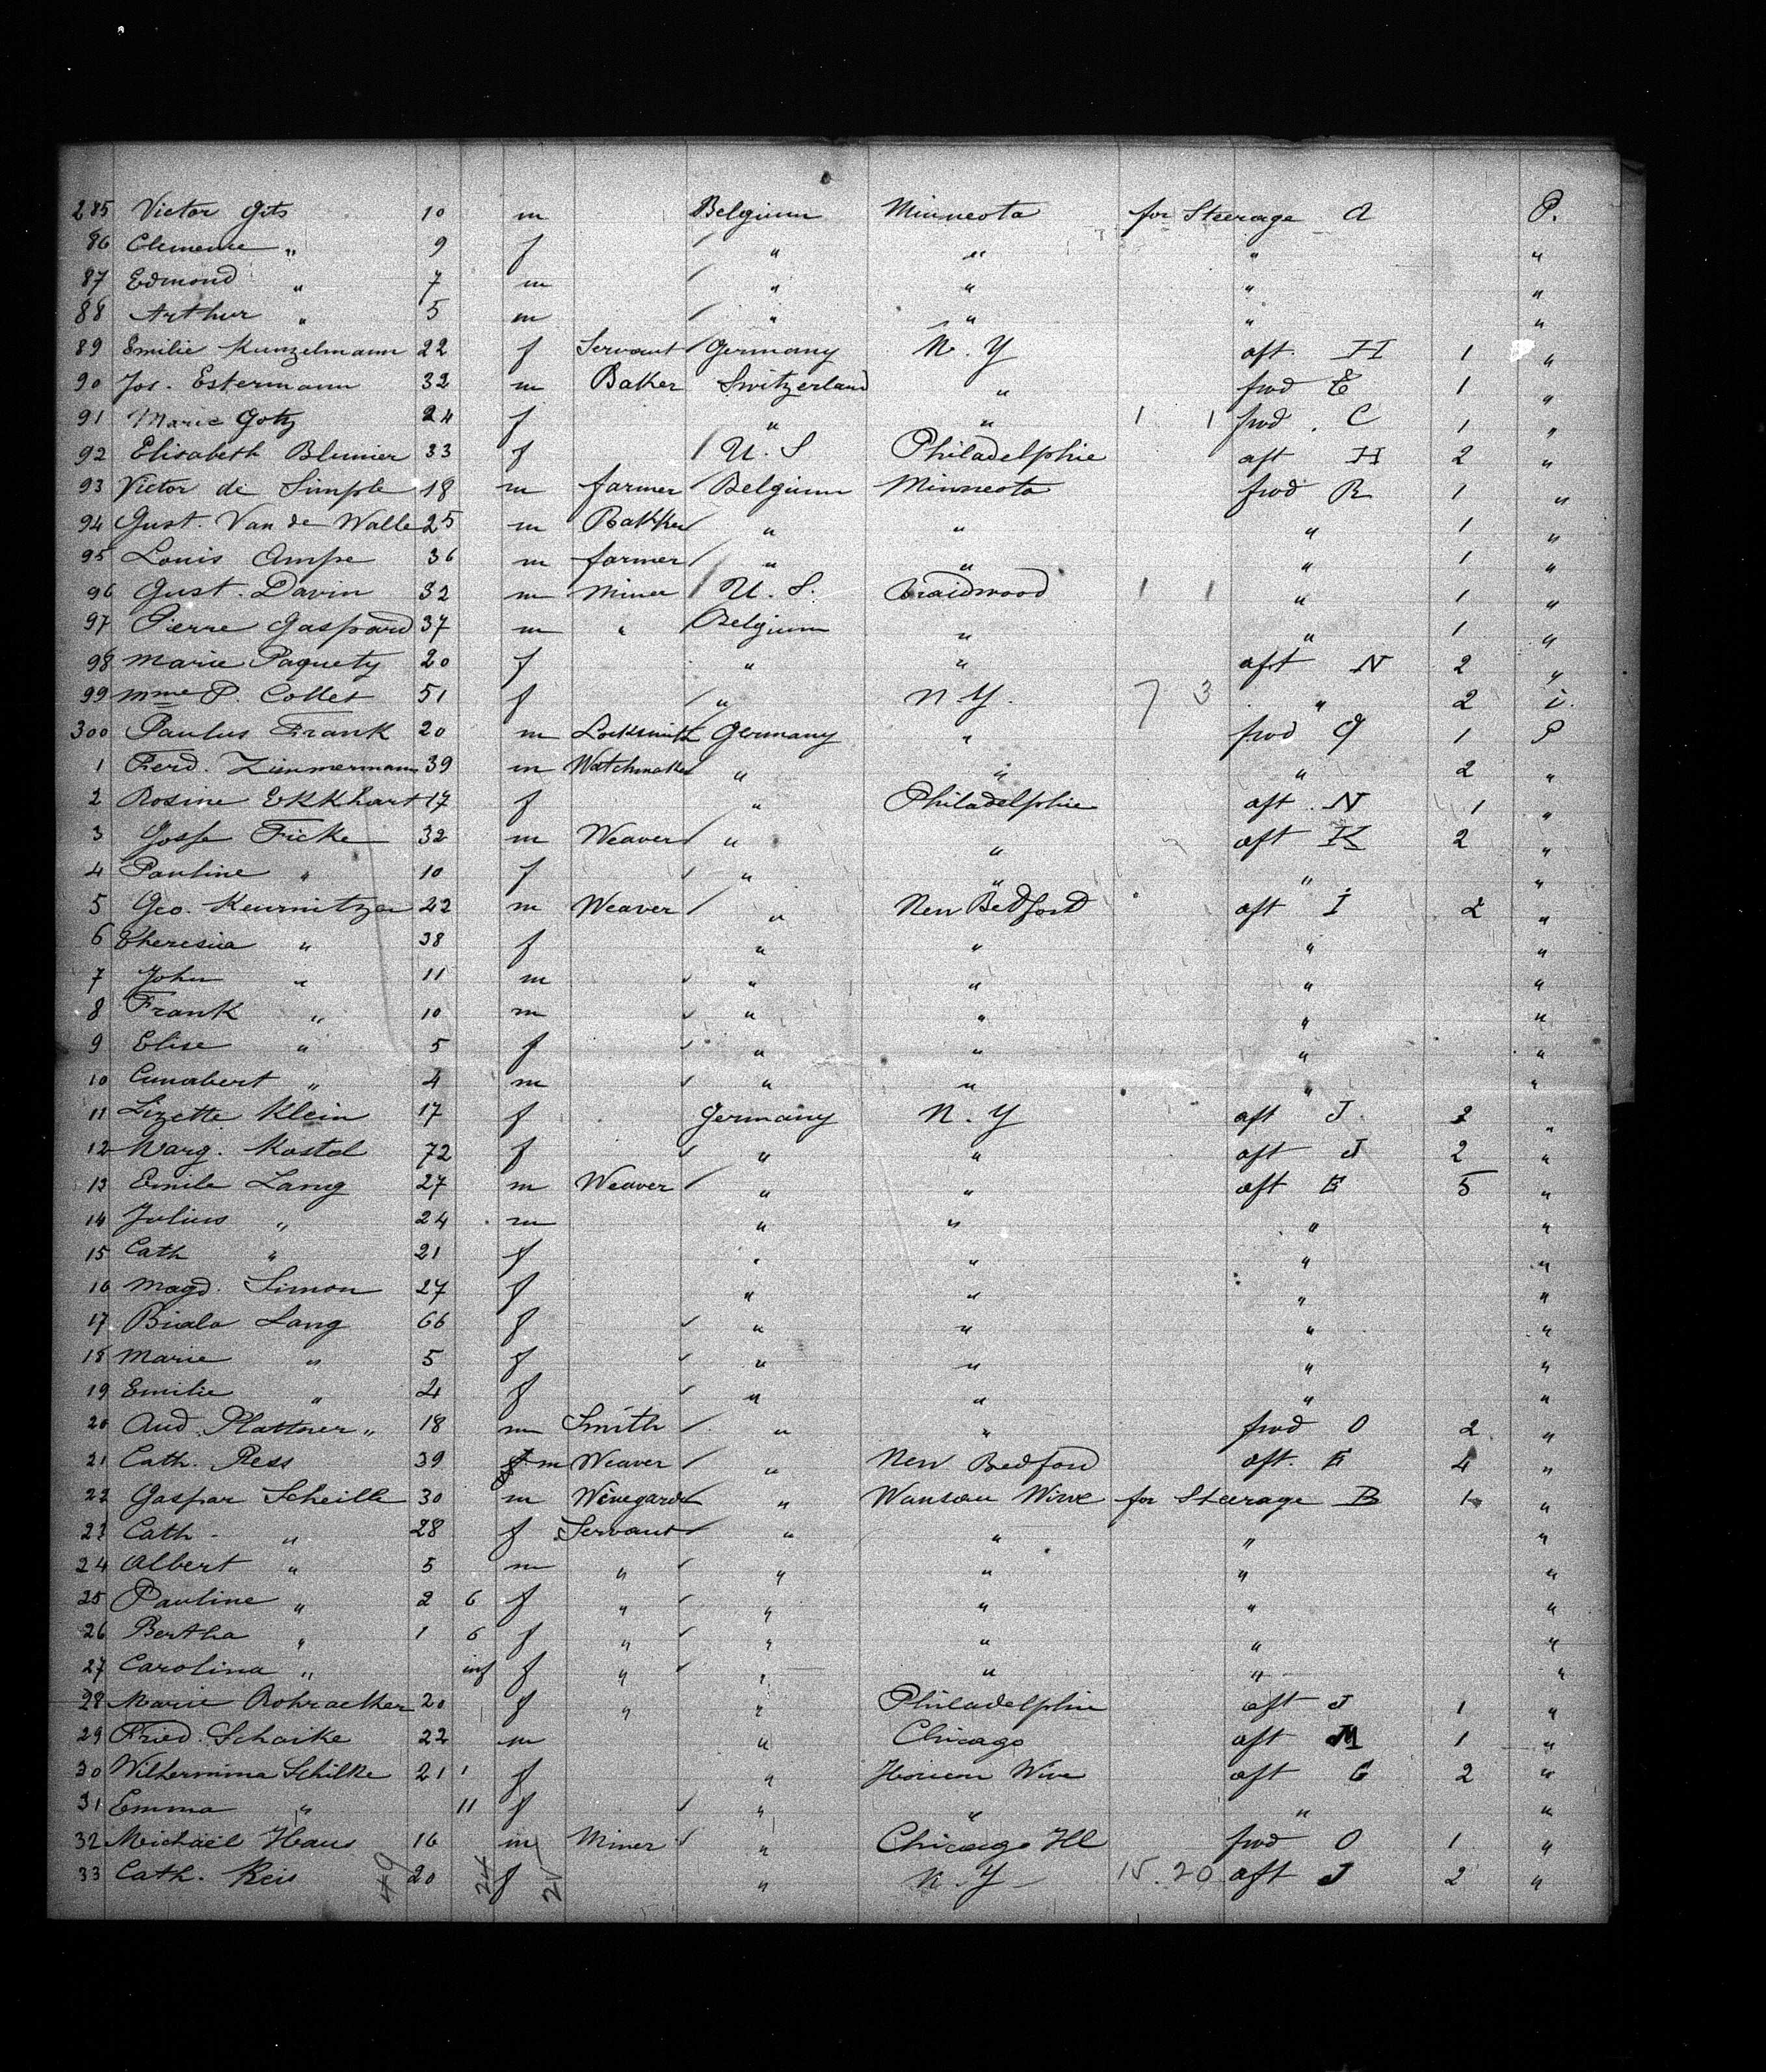 285 Victor Gits 10 m Belgium Minneota for Steerage A P.
86 Clemence " 9 f " " " "
87 Edmond " 7 m " " " "
88 Arthur " 5 m " " " "
89 Emilie Kunzelmann 22 f Servant Germany N. Y aft. H 1 "
90 Jos. Estermann 32 m Baker Switzerland " fwd E 1 "
91 Marie Gotz 24 f " " 1 1 fwd. C 1 "
92 Elisabeth Blumier 33 f U. S Philadelphie aft H 2 "
93 Victor de Simple 18 m farmer Belgium Minneota fwd R 1 "
94 Gust. Van de Walle 25 m Bakker " " " 1 "
95 Louis Ampe 36 m farmer " " " 1 "
96 Gust. Davin 32 m Miner U. S. Braidwood 1 1 " 1 "
97 Pierre Gaspard 37 m " Belgium " " 1 "
98 Marie Paquety 20 f " " aft N 2 "
99 Mme P. Collet 51 f " N. Y. 7 3 " 2 i.
300 Paulus Frank 20 m Locksmith Germany " fwd G 1 P
1 Ferd. Zimmermann 39 m Watchmaker " " " 2 "
2 Rosine Ekkhart 17 f " Philadelphie aft. N 1 "
3 Josf Ficke 32 m Weaver " " aft K 2 "
4 Pauline " 10 f " " " "
5 Geo. Keurnitzer 42 m Weaver " New Bedford aft I 2 "
6 Theresia " 38 f " " " "
7 John " 11 m " " " "
8 Frank " 10 m " " " "
9 Elise " 5 f " " " "
10 Cunabert " 4 m " " " "
11 Lizette Klein 17 f Germany N. Y aft J 2 "
12 Marg. Kostel 72 f " " aft J 2 "
13 Emile Lang 27 m Weaver " " aft E 5 "
14 Julius " 24 m " " " "
15 Cath " 21 f " " " "
16 Magd. Simon 27 f " " " "
17 Biala Lang 66 f " " " "
18 Marie " 5 f " " " "
19 Emilie " 4 f " " " "
20 Aud. Plattner " 18 m Smith " " fwd O 2 "
21 Cath. Ress 39 m Weaver " New Bedford aft. E 4 "
22 Gaspar Scheille 30 m Winegarder " Wausau Wise for Steerage B 1 "
23 Cath. " 28 f Servant " " " "
24 Albert " 5 m " " " " "
25 Pauline " 2 6 f " " " " "
26 Bertha " 1 6 f " " " " "
27 Carolina " inf f " " " " "
28 Marie Rohracker 20 f " " Philadelphie aft J 1 "
29 Fried. Schoike 22 m " Chicago aft M 1 "
30 Wilhermina Schilke 21 f " Horicon Wise aft G 2 "
31 Emma " 11 f " " " "
32 Michael Haus 16 m Miner " Chicago Ill fwd O 1 "
33 Cath. Reis 20 f " N. Y 15. 20 aft J 2 "
49 24 25